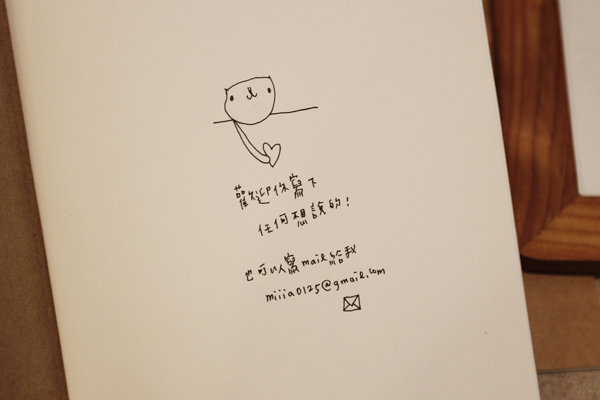 歡迎你寫下
任何想說的!
也可以寫mail給我
miiia0125@gmail.com